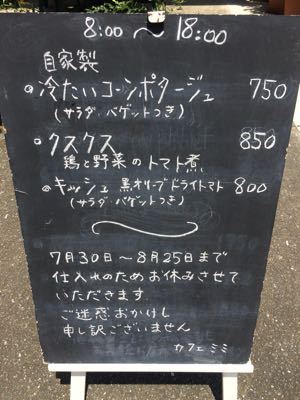 8:00 〜 18:00
自家製
冷たいコーンポタージュ 750
(サラダ・バゲットつき)
クスクス 850
鶏と野菜のトマト煮
キッシュ 黒オリーブドライトマト 800
(サラダ・バゲットつき)
7月30日〜8月25日まで
仕入れのためお休みさせて
いただきます
ご迷惑おかけし
申し訳ございません
カフェ ミミ